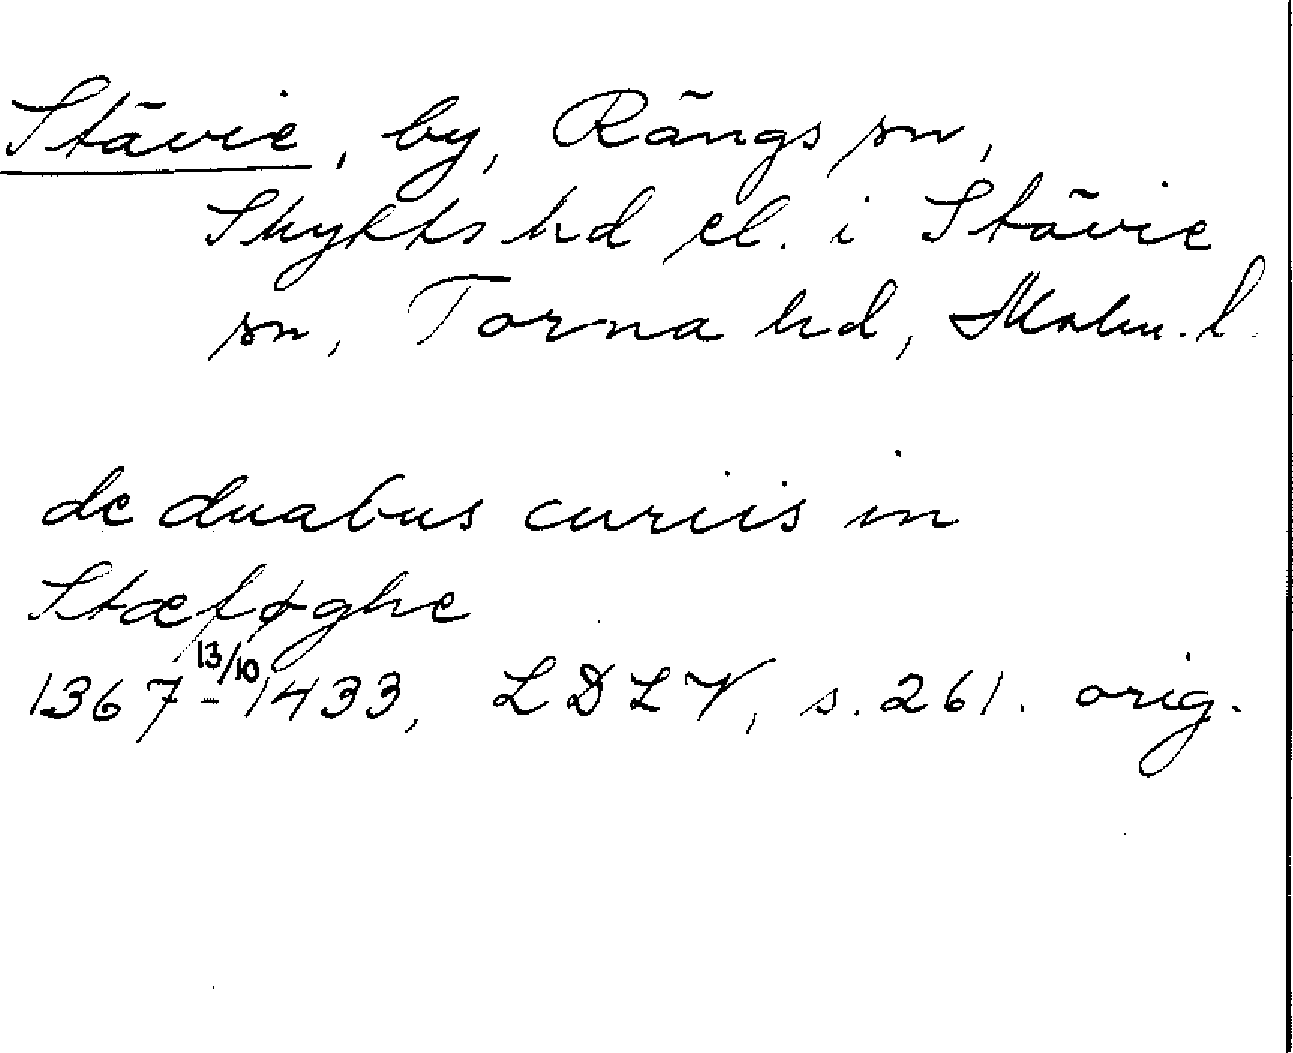 Stävie, by, Rängs sn,
Skytts hd el. i Stävie
sn, Torna hd, Malm. l.
de duabus curiis in
Stæføghe
1367-13/10 1433, LDLV, s. 261. orig.